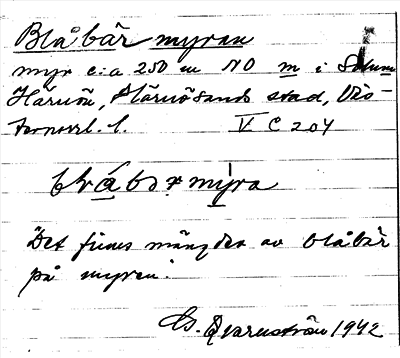 Blåbärmyran
myr c:a 250 m NO m i Solum
Härnön, Härnösands stad, Väs-
ternorrl. l. V C 204
blåbærmýra
Det finns mängder av blåbär
på myren.
Gs. Qvarnström 1942